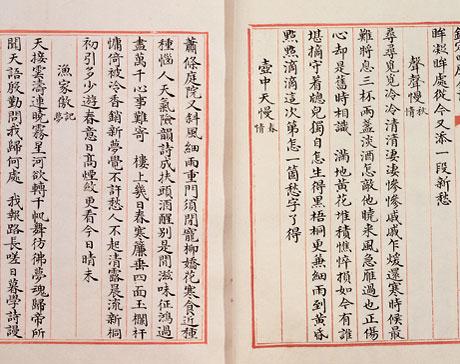 眸凝眸處從今又添一段新愁
聲聲慢 秋情
尋尋覓覓冷冷清清淒淒慘慘戚戚乍煖還寒時候最
難將息三杯兩盞淡酒怎敵他曉來風急雁過也正傷
心却是舊時相識 滿地黃花堆積憔悴損如今有誰
堪摘守着牕兒獨自怎生得黑梧桐更兼細雨到黃昏
點點滴滴這次第怎一箇愁字了得
壺中天慢 春情
蕭條庭院又斜風細雨重門須閉寵柳嬌花寒食近種
種惱人天氣險韻詩成扶頭酒醒別是閒滋味征鴻過
盡萬千心事難寄 樓上幾日春寒簾垂四面玉欄干
慵倚被冷香銷新夢覺不許愁人不起清露晨流新桐
初引多少遊春意日高煙斂更看今日晴未
漁家傲 記夢
天接雲濤連曉霧星河欲轉千帆舞彷彿夢魂歸帝所
聞天語殷勤問我歸何處 我報路長嗟日暮學詩謾